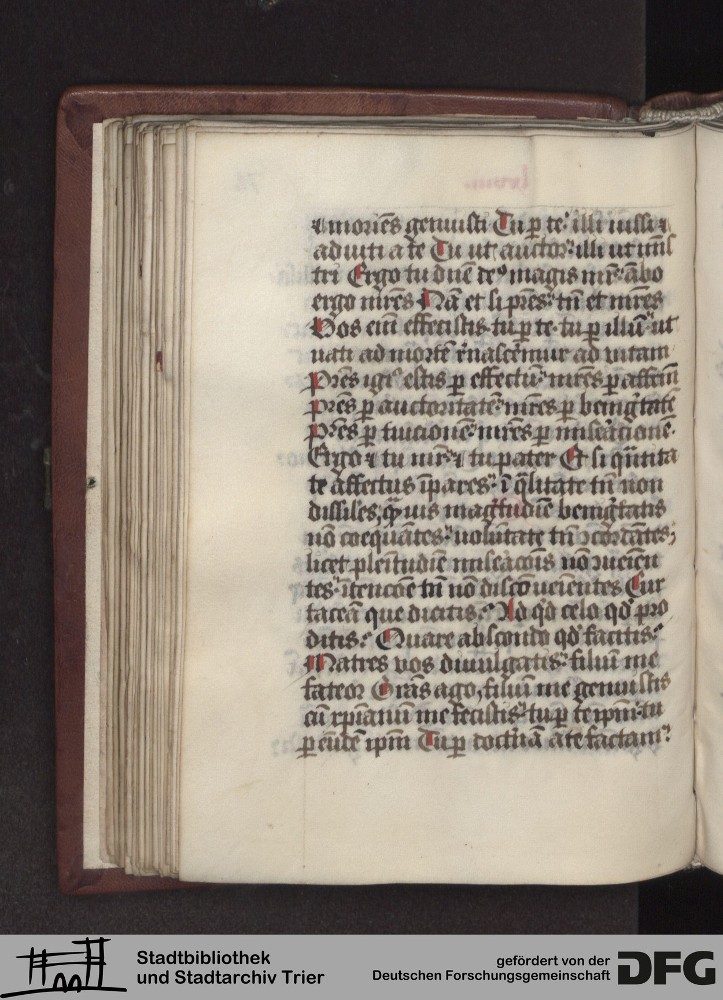 ⁊ moriēs genuisti Tu ꝑ te illi iussi ⁊
ad iuti a te Tu ut auctor illi ut mīs
tri Ergo tu dn̄e deꝰ magis mr̄ ābo
ergo mr̄es Nā et si pr̄es tn̄ et mr̄es
Vos eni effecistis tu ꝑ te tu ꝑ illū ut
nati ad mortē renascem̄ur ad vitam
Pr̄es igr̄ estis ꝑ effectū mr̄es ꝑ affcm̄
pr̄es ꝑ auctoritatē mr̄es ꝑ benigtatē
pr̄es ꝑ tuicionē mr̄es ꝑ miseracionē
Ergo ⁊ tu mr̄ ⁊ tu pater Et si qn̄tita
te affectus īpares ī qlitate tn̄ non
dissiles qͣuis magtudīe benigtatis
nō coequātes volūtate tn̄ ↄcordātes
licet plenitudīe miseracōis nō ↄueien
tes ītencōe tn̄ nō discōueientes Cur
taceā que dicitis Ad qd celo qd pro
ditis Quare abscondo qd facitis
Matres vos divulgatis filiū me
fateor Grās ago filiū me genuistis
cū xp̄ianū me fecistis tu ꝑ teip̄m tu
ꝑ eūdē ip̄m Tu ꝑ doctrīā a te factam
Stadtbibliothek
und Stadtarchiv Trier
gefördert von der
Deutschen Forschungsgemeinschaft
DFG